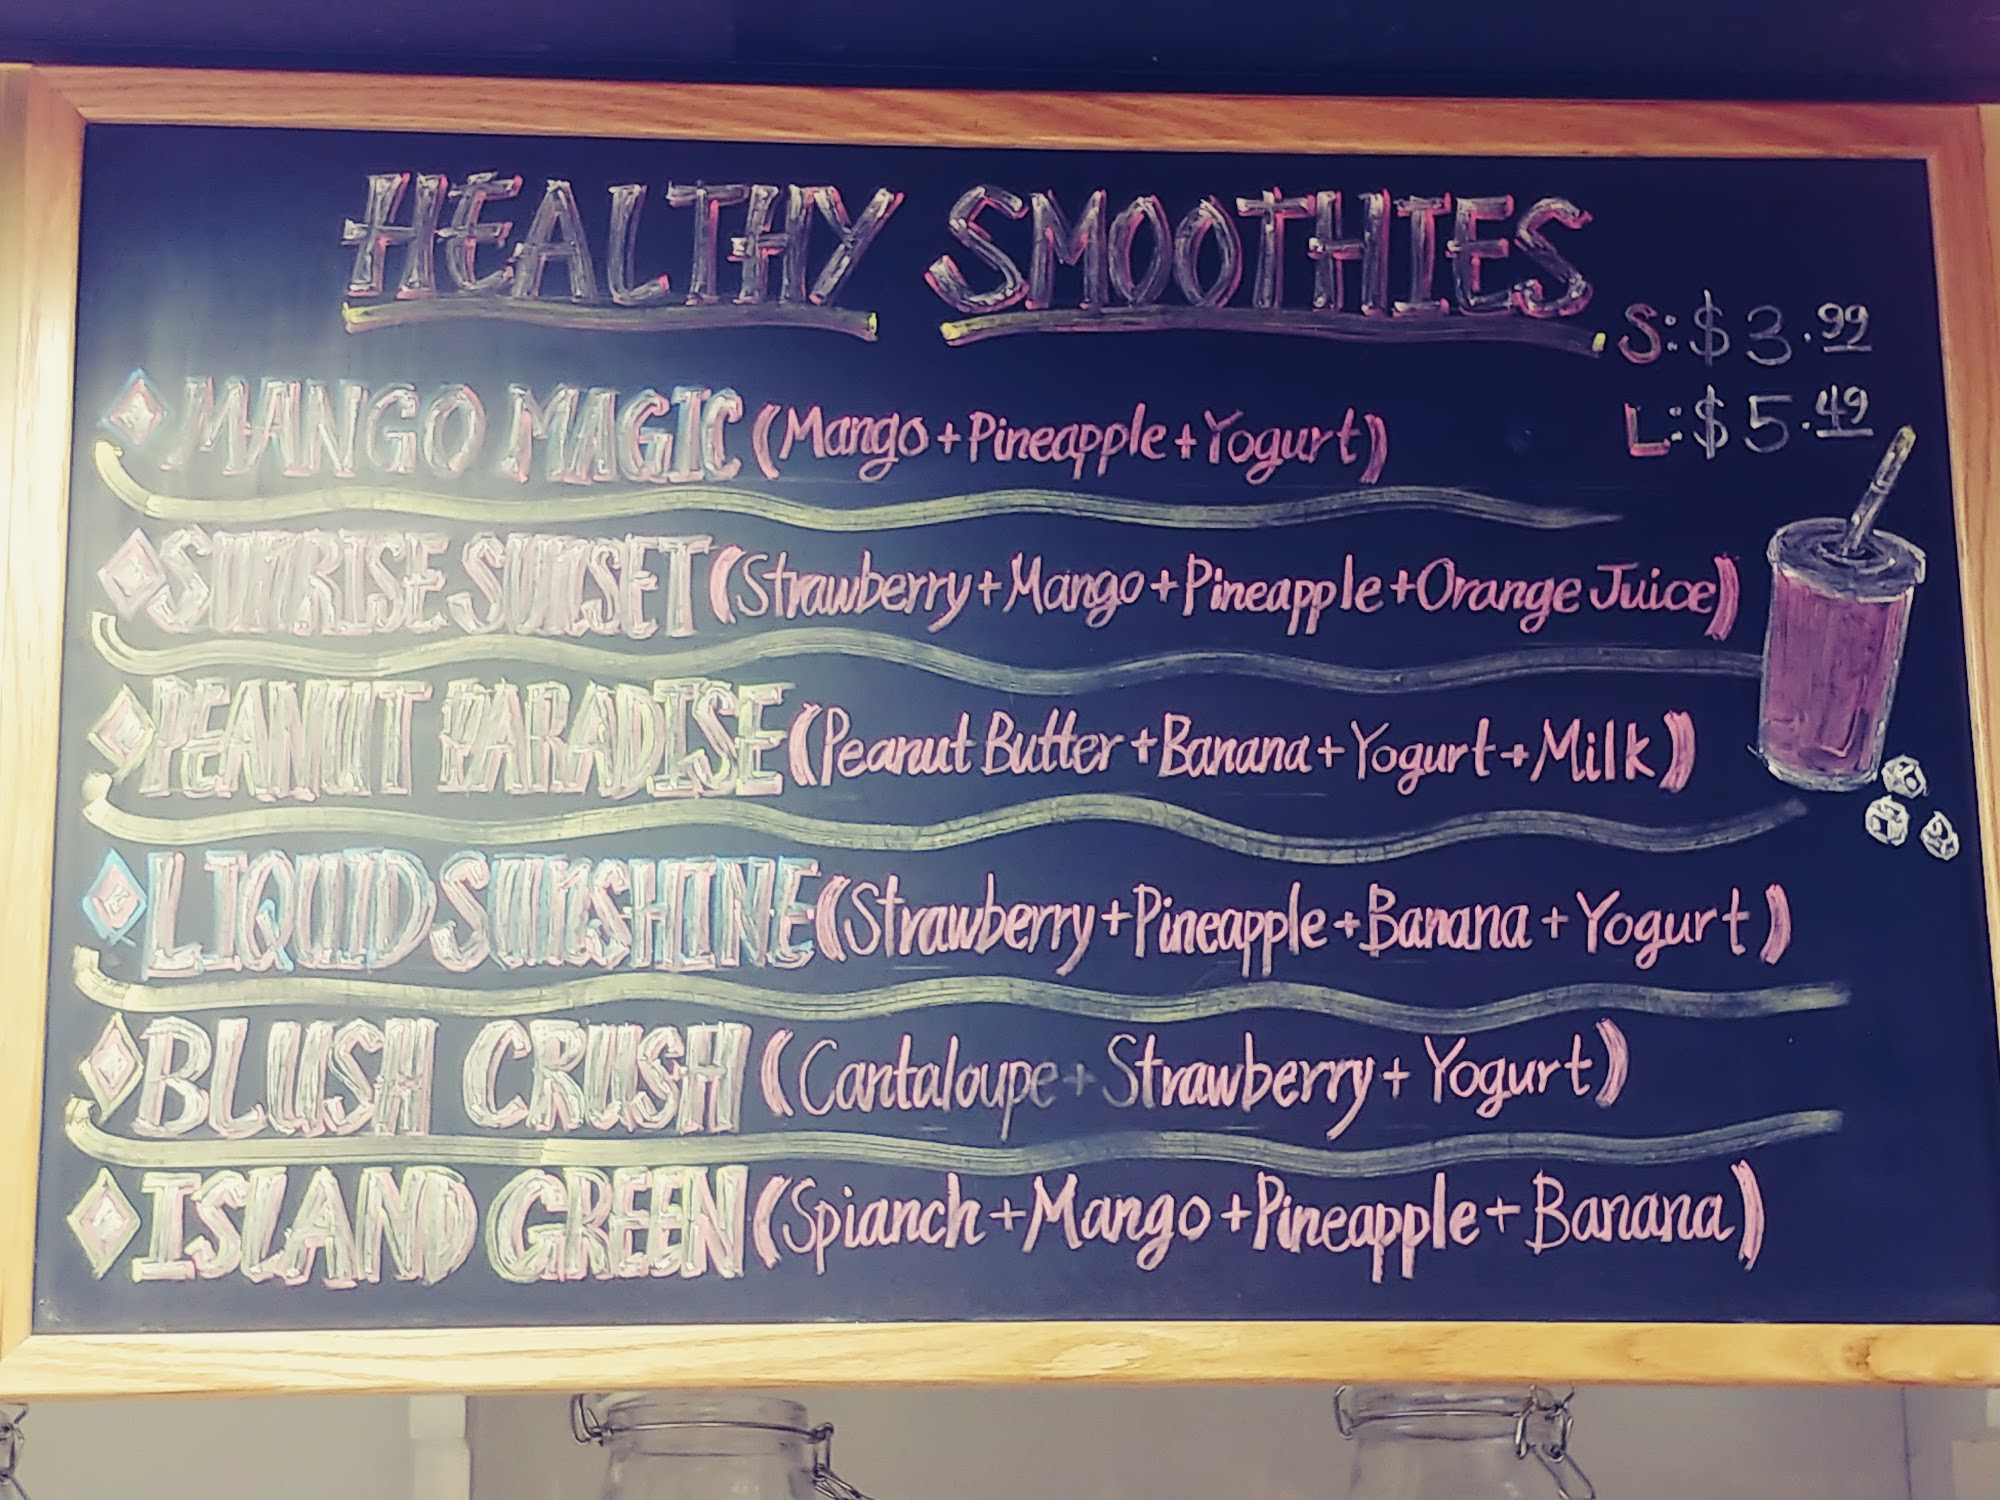 HEALTHY SMOOTHIES
S: $3.99
L: $5.49
MANGO MAGIC (Mango + Pineapple + Yogurt)
SUNRISE SUNSET (Strawberry + Mango + Pineapple + Orange Juice)
PEANUT PARADISE (Peanut Butter + Banana + Yogurt + Milk)
LIQUID SUNSHINE (Strawberry + Pineapple + Banana + Yogurt)
BLUSH CRUSH (Cantaloupe + Strawberry + Yogurt)
ISLAND GREEN (Spianch + Mango + Pineapple + Banana)